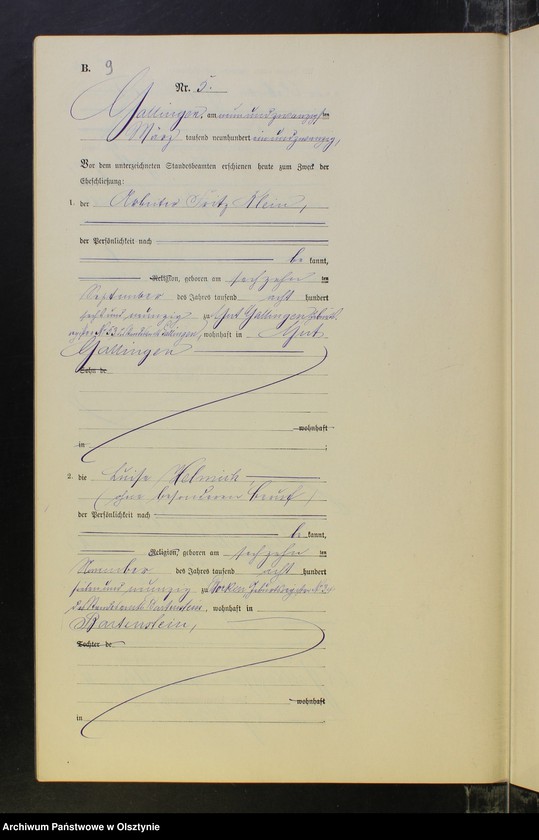 B. 9
Nr. 5.
Gallingen, am neunundzwanzigsten
März tausend neunhundert einundzwanzig,
Vor dem unterzeichneten Standesbeamten erschienen heute zum Zweck der
Eheschließung:
1. der Arbeiter Fritz Klein,
der Persönlichkeit nach
be kannt,
Religion, geboren am sechzehn ten
September des Jahres tausend acht hundert
sechsundneunzig zu Gut Gallingen
wohnhaft in Gut
Gallingen
Sohn de
wohnhaft
in
2. die Luise Helmich,
(ohne besonderen Beruf)
der Persönlichkeit nach
be kannt,
Religion, geboren am sechzehn ten
November des Jahres tausend acht hundert
siebenundneunzig zu
des Standesamts Bartenstein, wohnhaft in
Bartenstein,
Tochter de
wohnhaft
in
Archiwum Państwowe w Olsztynie